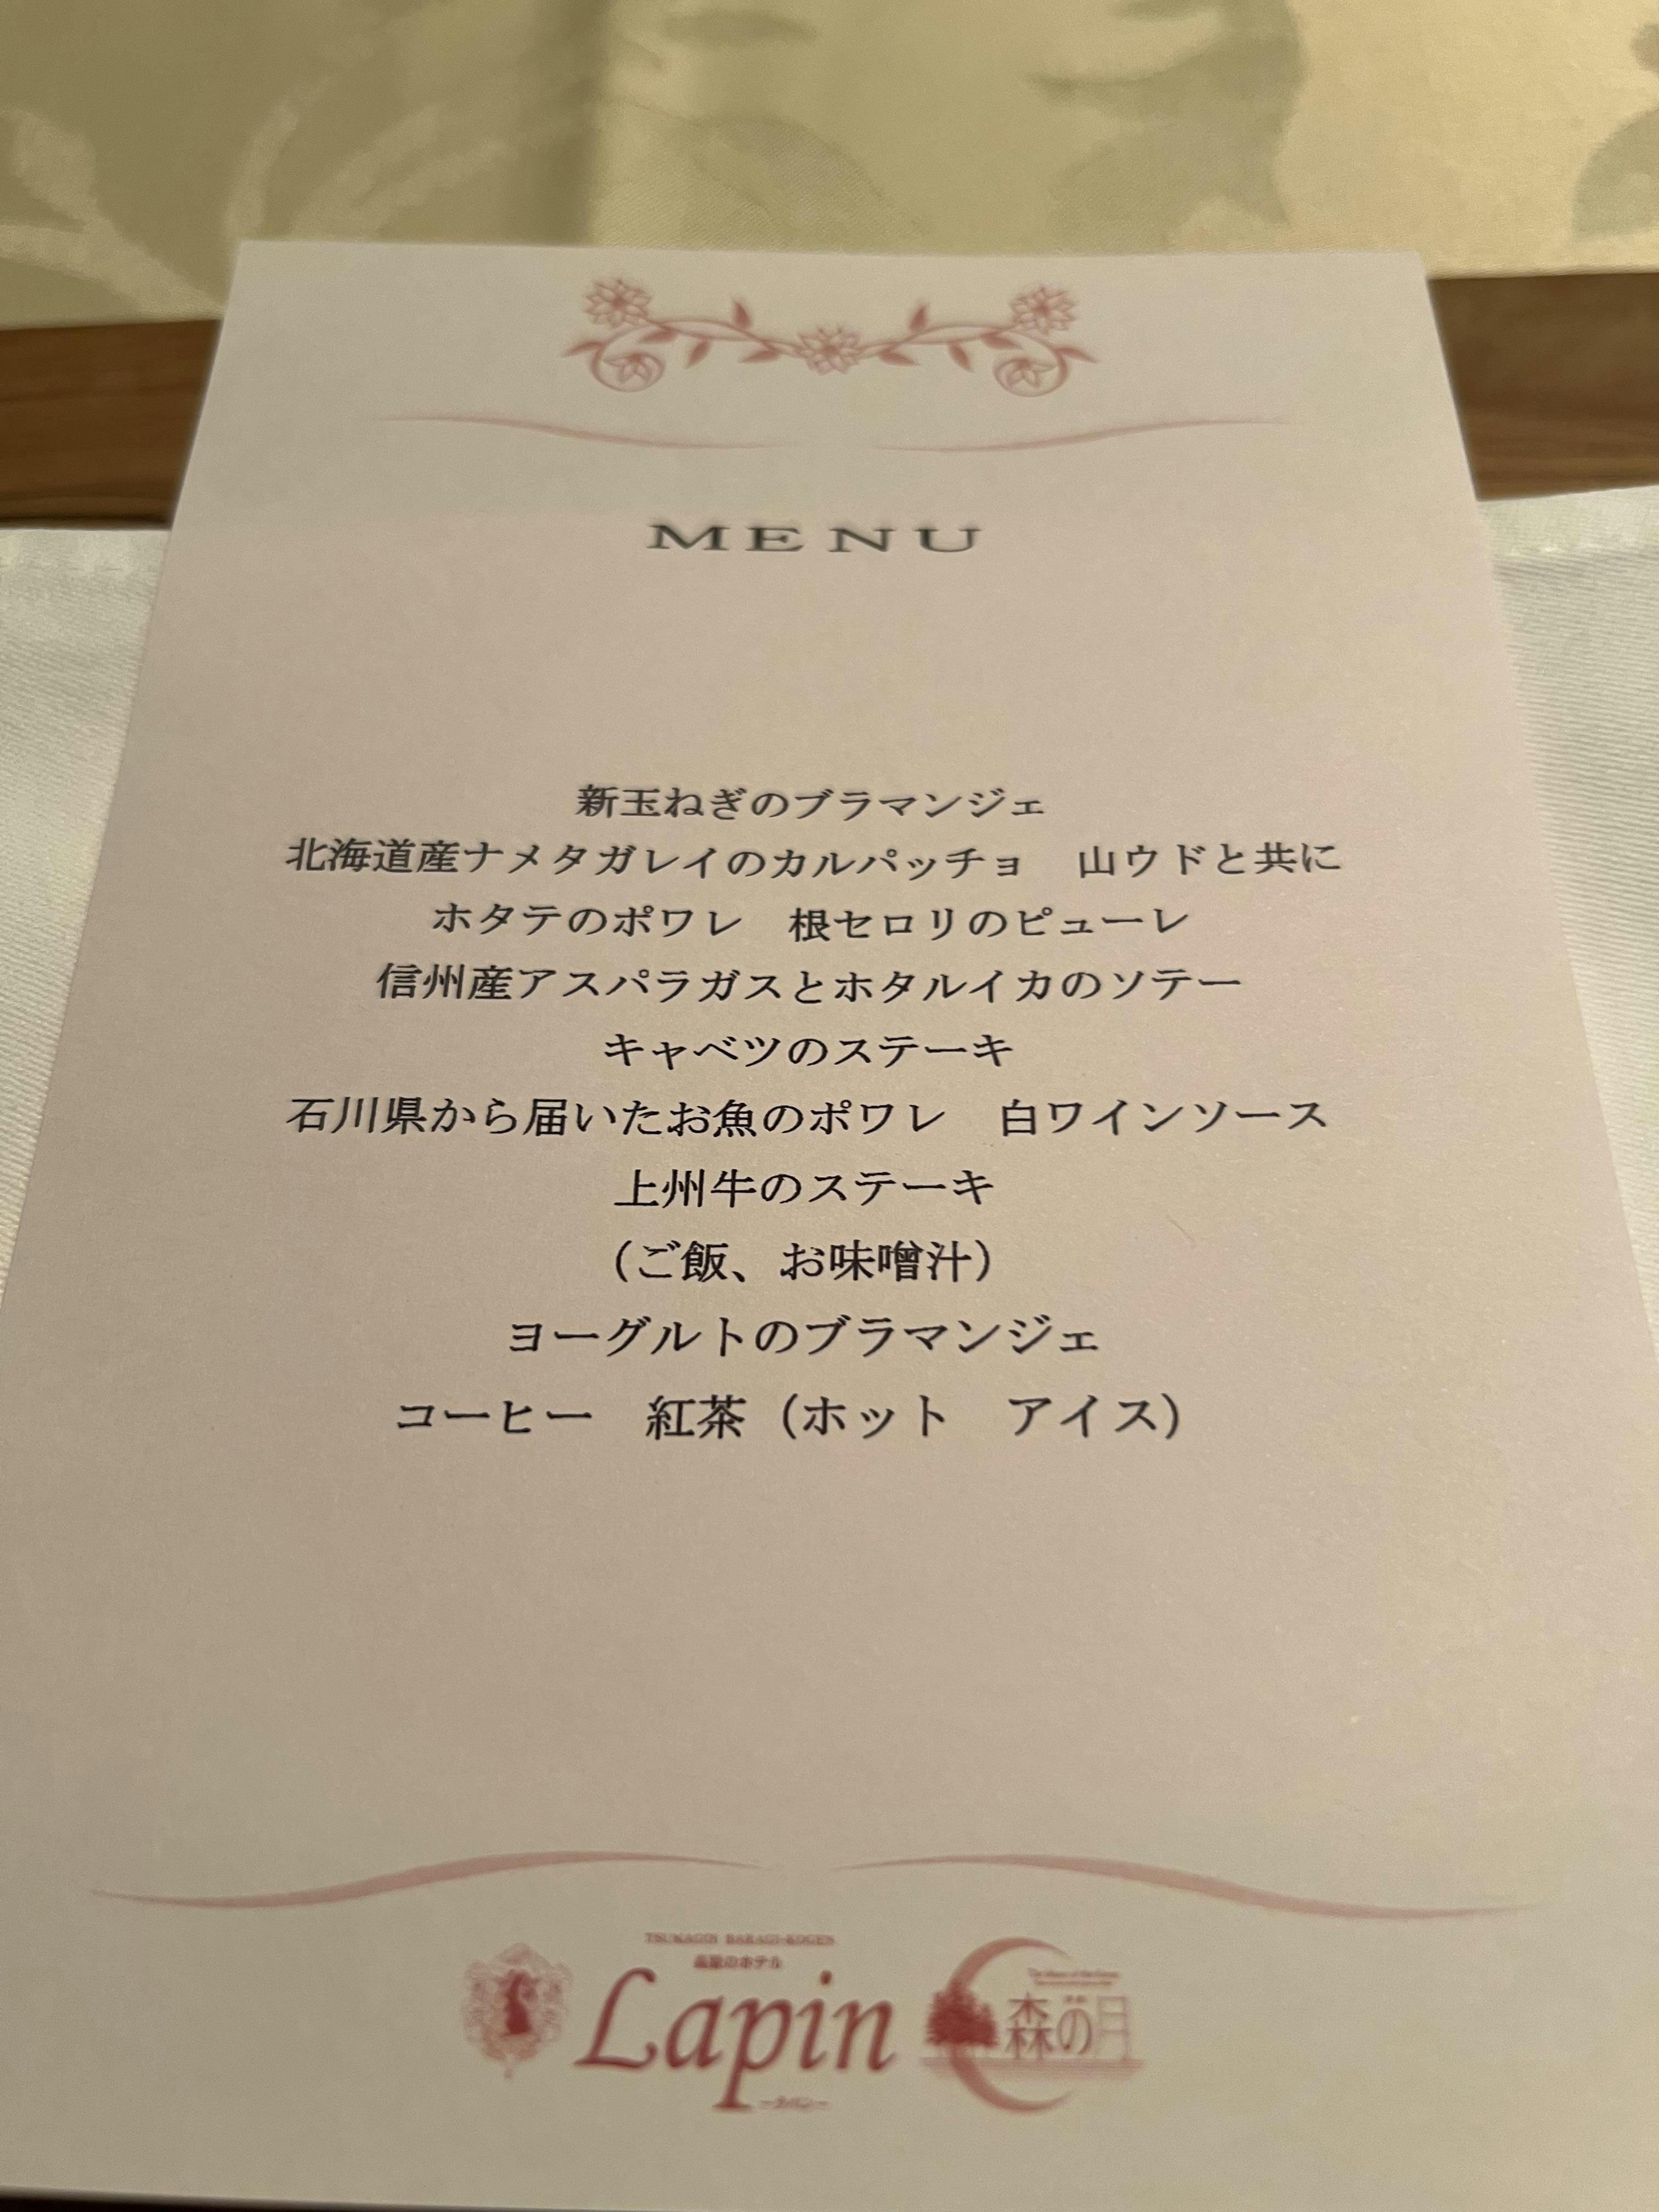 MENU
新玉ねぎのブラマンジェ
北海道産ナメタガレイのカルパッチョ　山ウドと共に
ホタテのポワレ　根セロリのピューレ
信州産アスパラガスとホタルイカのソテー
キャベツのステーキ
石川県から届いたお魚のポワレ　白ワインソース
上州牛のステーキ
（ご飯、お味噌汁）
ヨーグルトのブラマンジェ
コーヒー　紅茶（ホット　アイス）
TSUMAGOI BARAGI-KOGEN
高原のホテル
Lapin
森の月